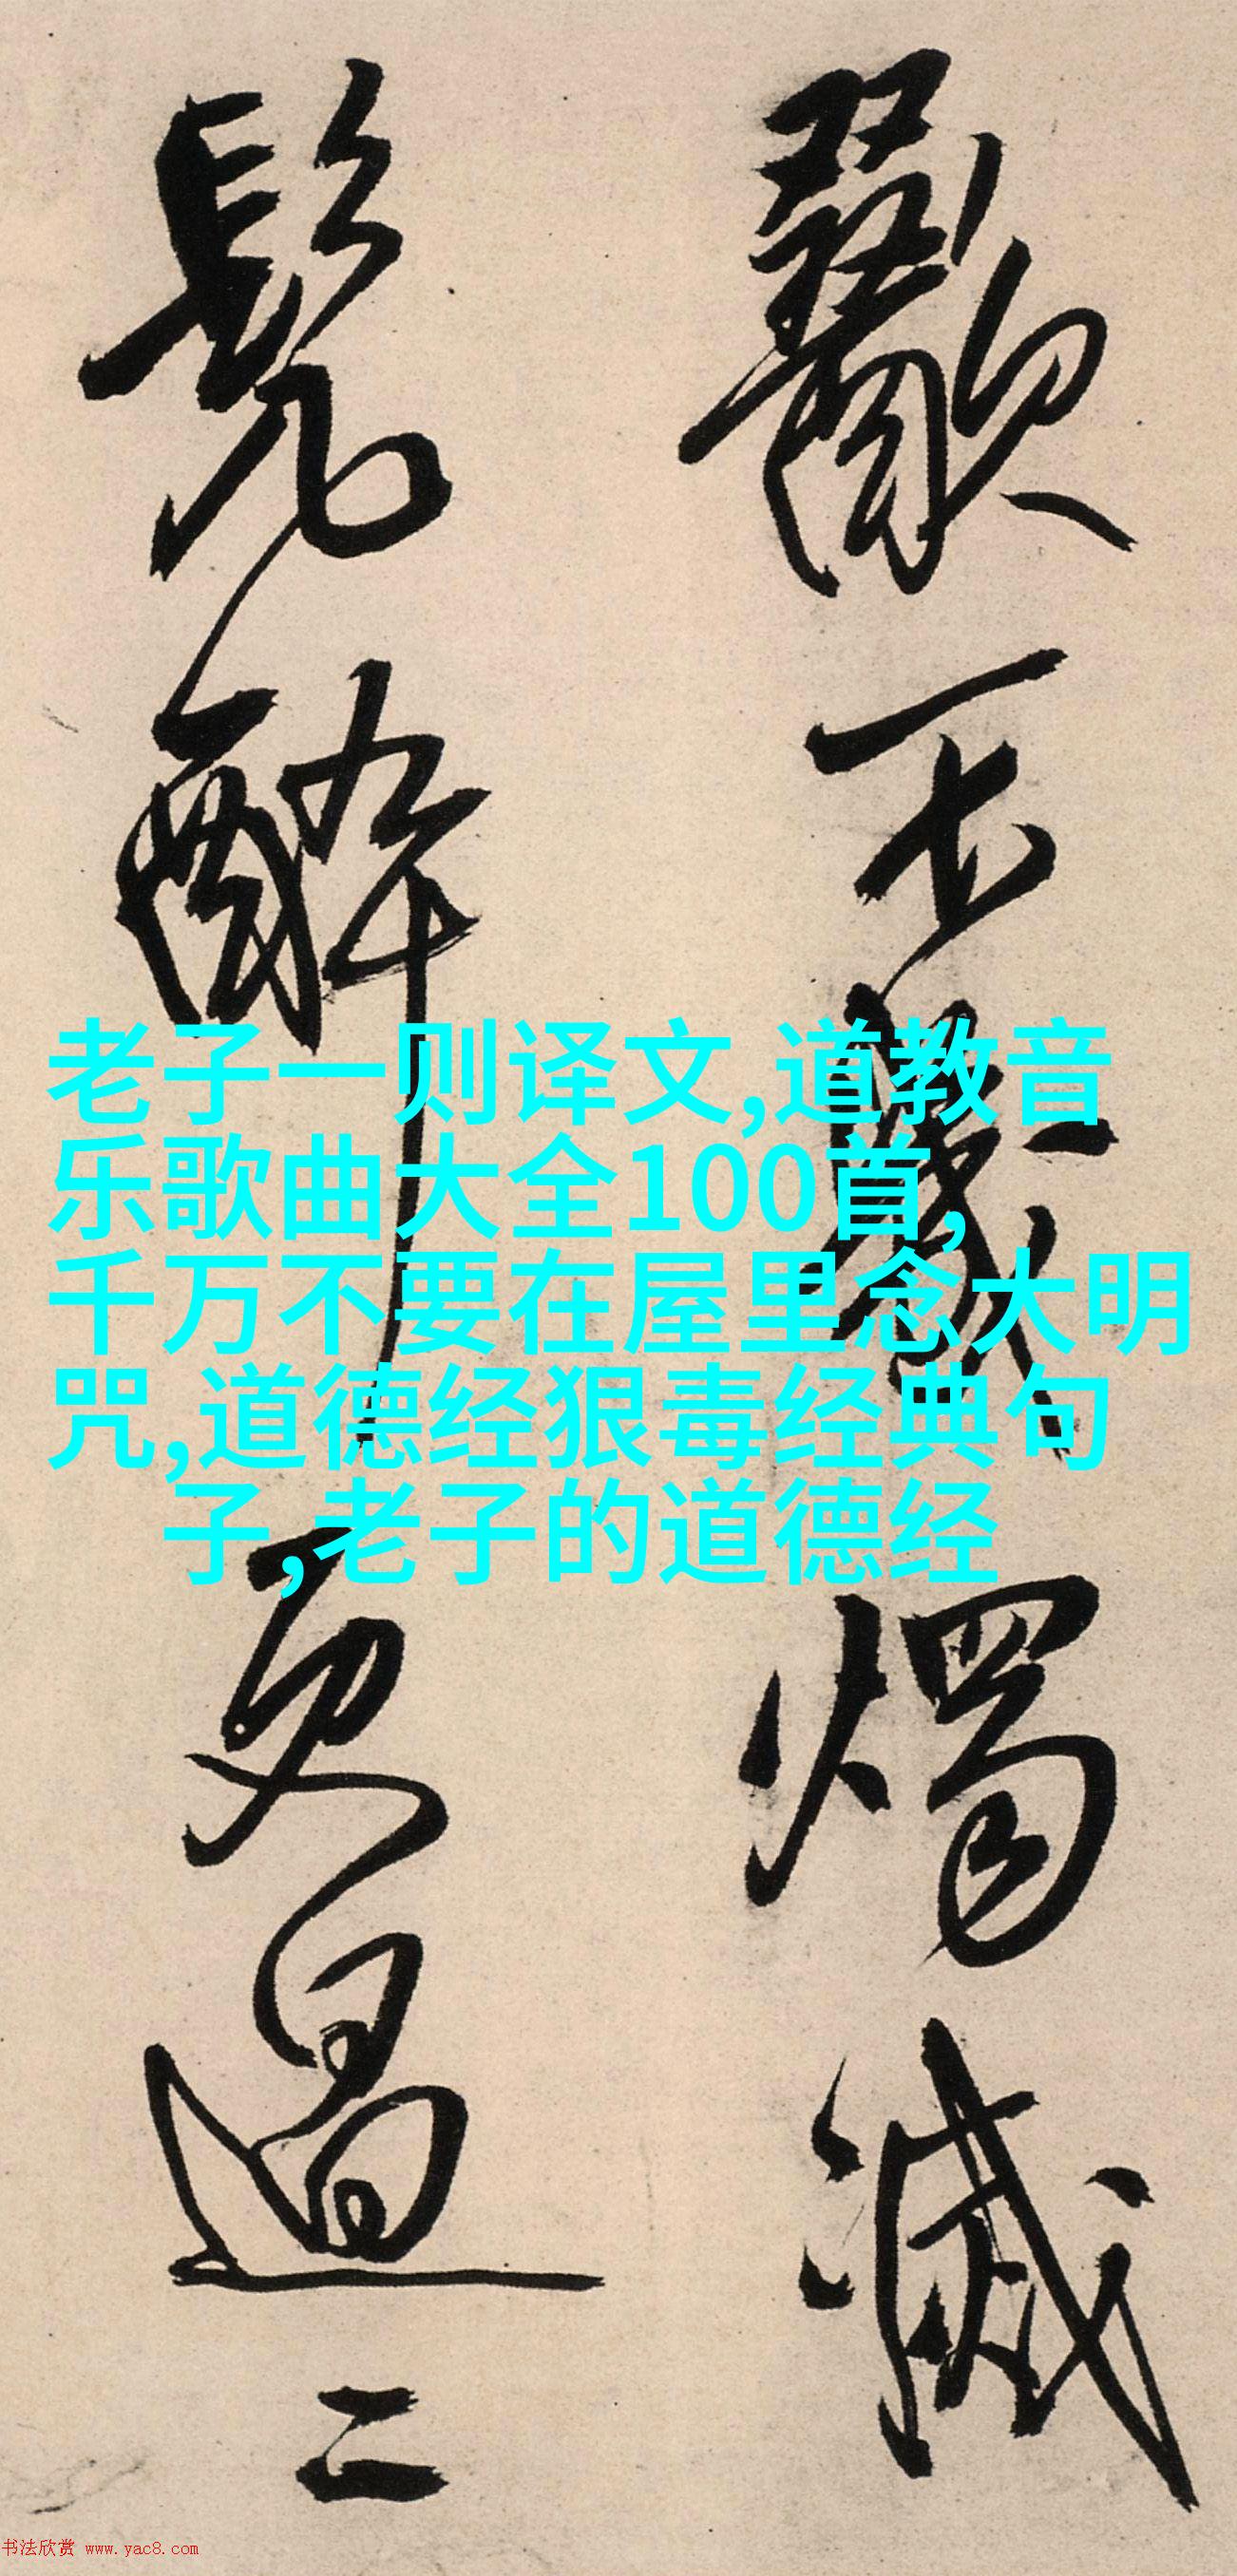 老子一则译文,道教音
乐歌曲大全100首,
千万不要在屋里念大明
咒,道德经狠毒经典句
子,老子的道德经
不
烛
灭
醉
更
过
二
书法欣赏 www.yac8.com